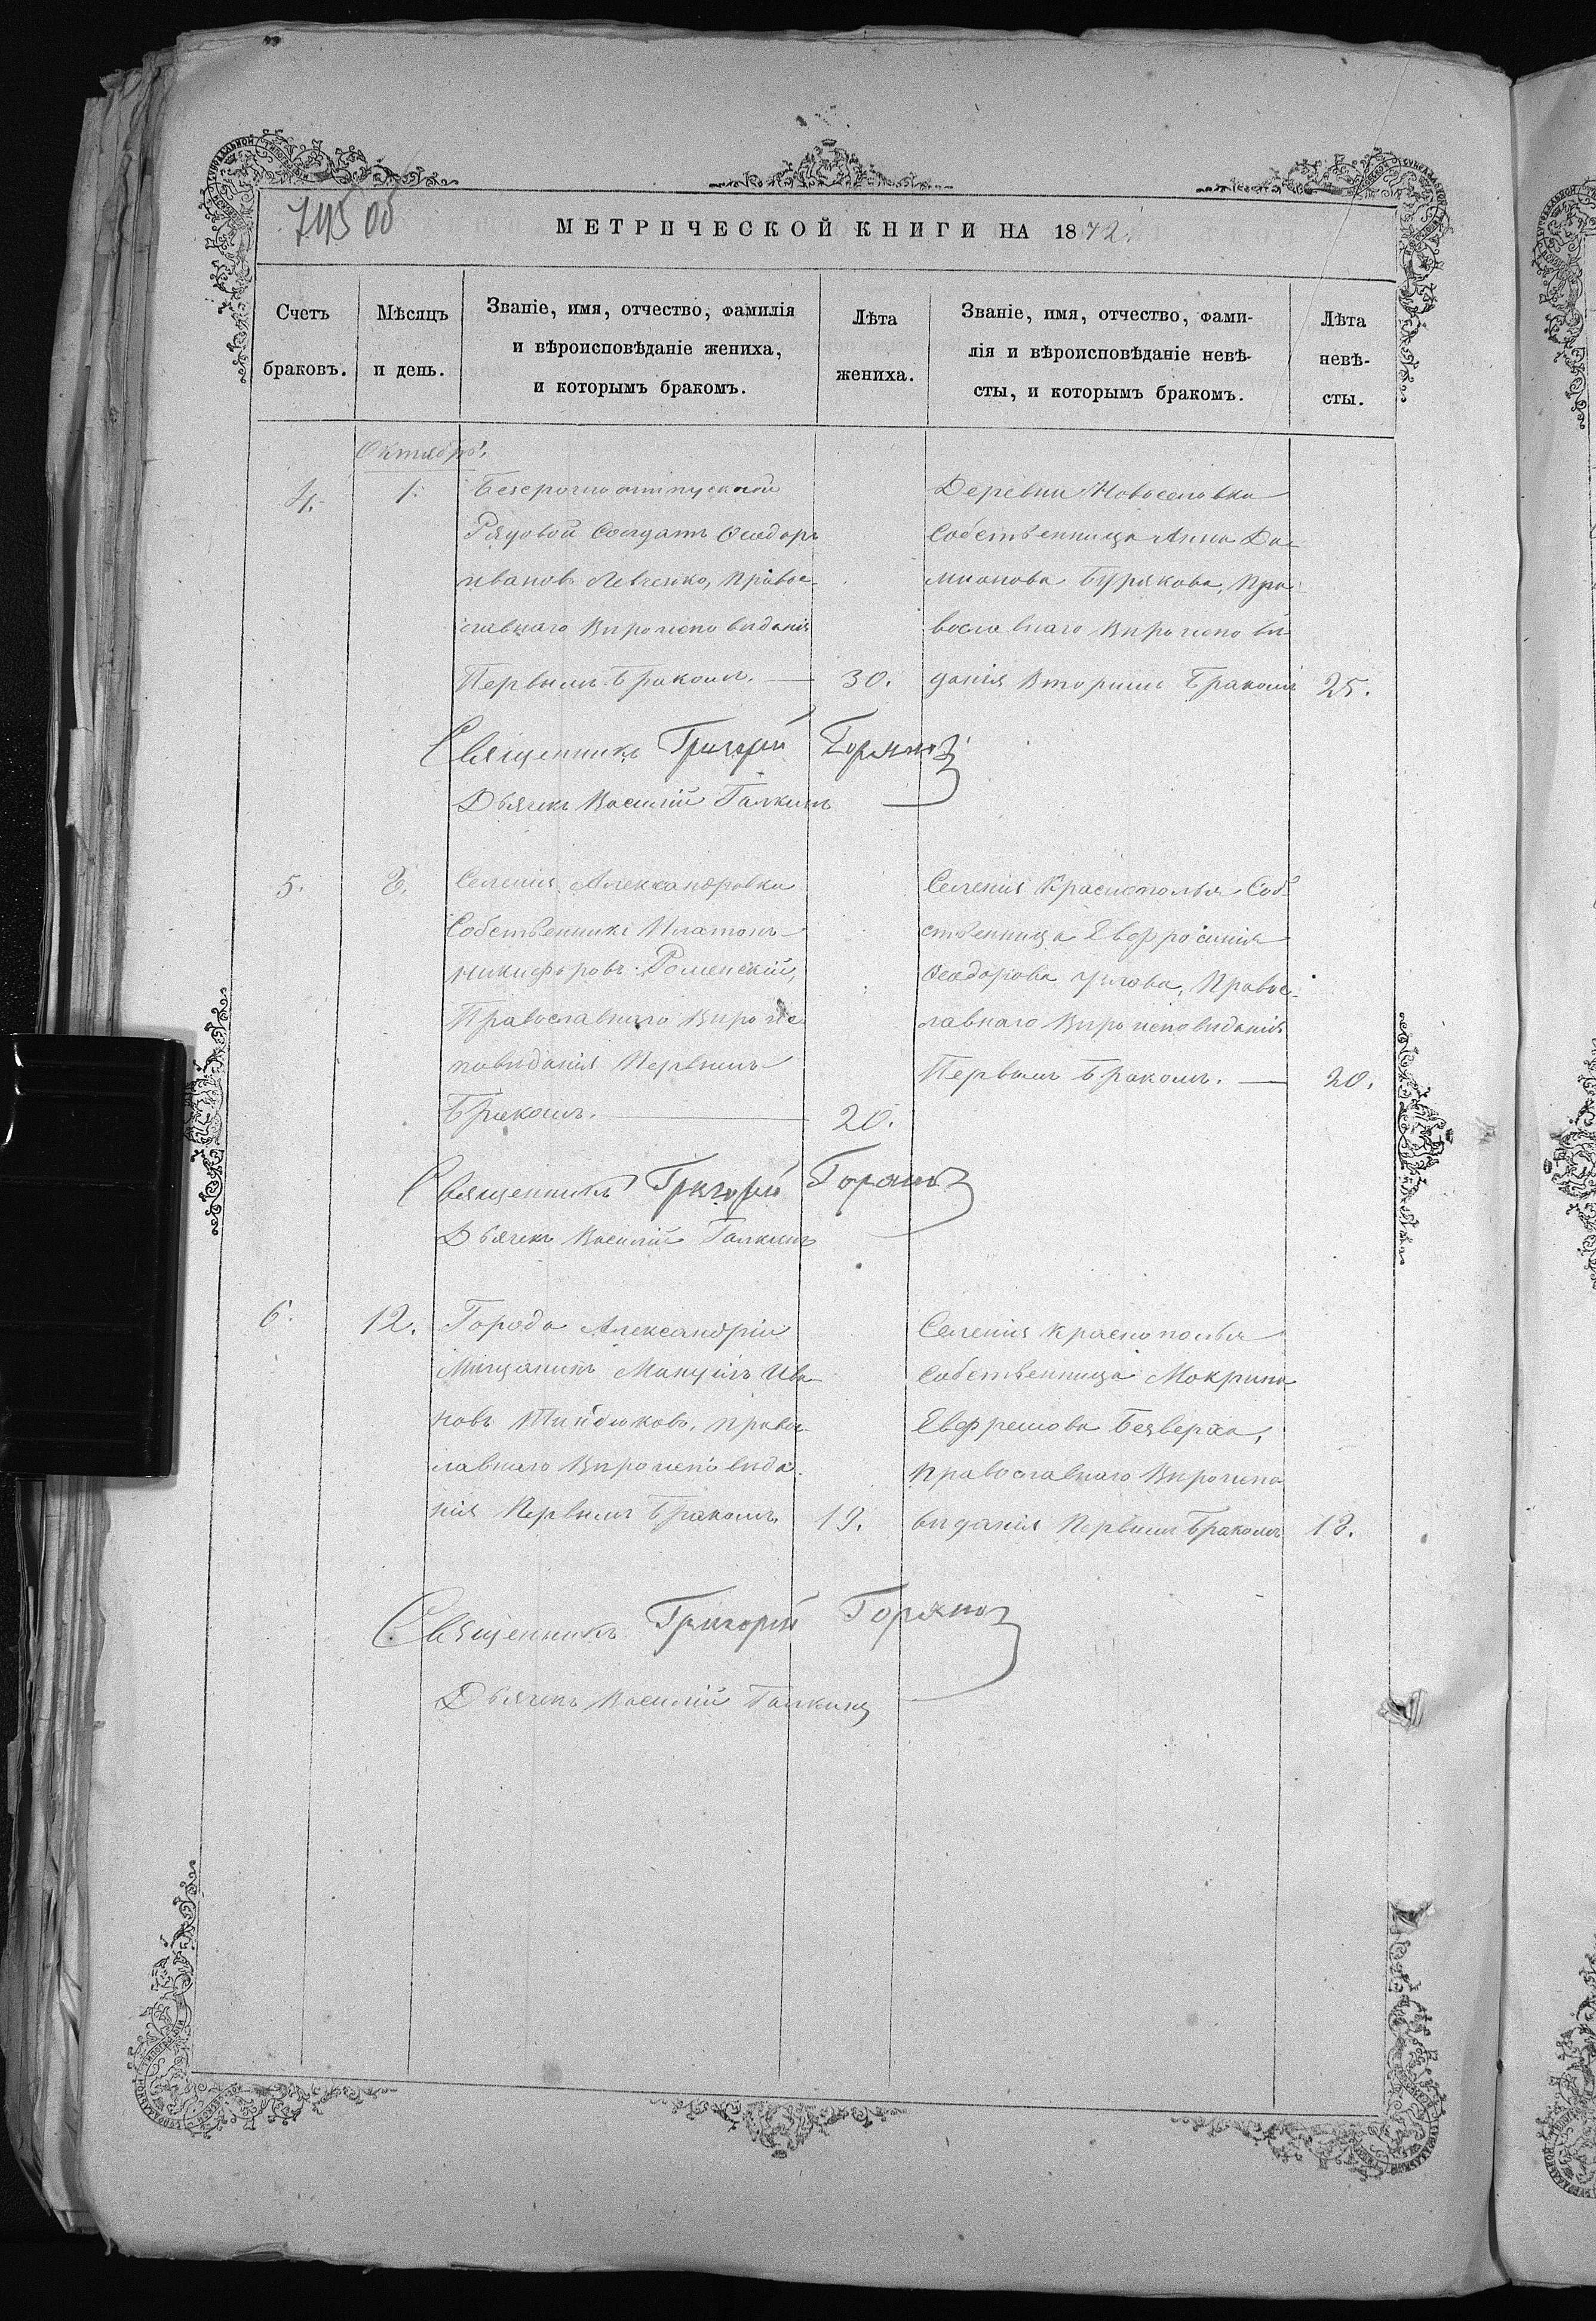 МЕТРИЧЕСКОЙ КНИГИ НА 1872.
Счетъ браковъ.
Мѣсяцъ и день.
Званіе, имя, отчество, фамилія
и вѣроисповѣданіе жениха,
и которымъ бракомъ.
Лѣта жениха.
Званіе, имя, отчество, фами-
лія и вѣроисповѣданіе невѣ-
сты, и которымъ бракомъ.
Лѣта невѣ-
сты.
Октябрь.
4. 1.
Безсрочно отпускной
Рядовой Солдатъ Ѳеодоръ
Ивановъ Левченко, Правос-
славнаго Вироисповиданія
Первымъ Бракомъ. — 30.
Деревни Новоселовки
Собственница Анна Да-
мианова Бурякова, Пра-
вославнаго Вироисповы-
данія Вторымъ Бракомъ 25.
Священникъ Григорій
Дьячекъ Василій Галкинъ
5.
Селенія Александровки
Собственникъ Платонъ
Никифоровъ Роменскій,
Православнаго Вироис-
повиданія Первымъ
Бракомъ. — 20.
Селенія Краснополья Соб-
ственница Евфросинія
Ѳеодорова Православ-
лавнаго Вироисповиданія
Первымъ Бракомъ. — 20.
Священникъ Григорій
Дьячекъ Василій Галкинъ
6. 12.
Города Александріи
Мищанинъ Мануилъ Ива-
новъ Правос-
лавнаго Вироисповида-
нія Первымъ Бракомъ. 19.
Селенія Краснополья
Собственница Мокрина
Евфремова Безверха,
Православнаго Вироиспо-
виданія Первымъ Бракомъ 18.
Священникъ Григорій
Дьячекъ Василій Галкинъ